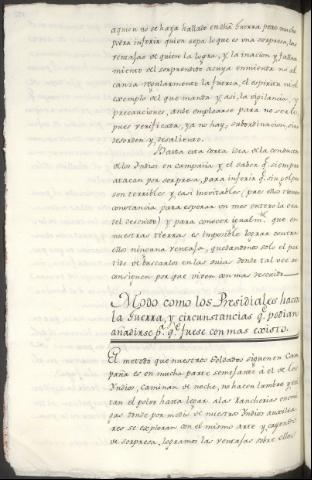 aquien no se haya hallado en dicha Guerra, pero mucho
para inferir quien sepa lo que es una sorpresa, las
ventajas de quien la logra, y la inaccion y falta
miento del sorprendido acuya enmienda no al
canza regularmente la fuerza, el espiritu ni el
exemplo del que manda y asi, la vigilancia, y
precauciones, ante emplearse para no serlo,
pues verificada, ya no hay, subordinacion, sino
desorden y desaliento.
Basta esta corta idea de la conducta
de los Indios en campaña y el saber q.e siempre
atacan por sorpresa, para inferir q.e sin pulso
son terribles y casi inevitables; pues ellos tienen
constancia para esperar un mes entero la ora
del descuido) y para conocer igualm.te que en
nuestras tierras es imposible lograr contra
ellos ninguna ventaja, quedandonos solo el par
tido de buscarlos en las suias donde tal vez se
consiguen por que viven con mas descuido
Modo como los Presidiales hacen
la Guerra, y circunstancias q.e podian
añadirse p.a q.e fuese con mas exito.
El metodo que nuestros Soldados siguen en Cam
paña es en mucha parte semejante á el de los
Indios, caminan de noche, no hacen lumbre y evi
tan el polvo hasta llegar á las Rancherias enemi
gas donde por medio de nuestros Indios auxilia
res se exploran con el mismo arte y cayendo
de sorpresa, logramos las ventajas sobre ellos